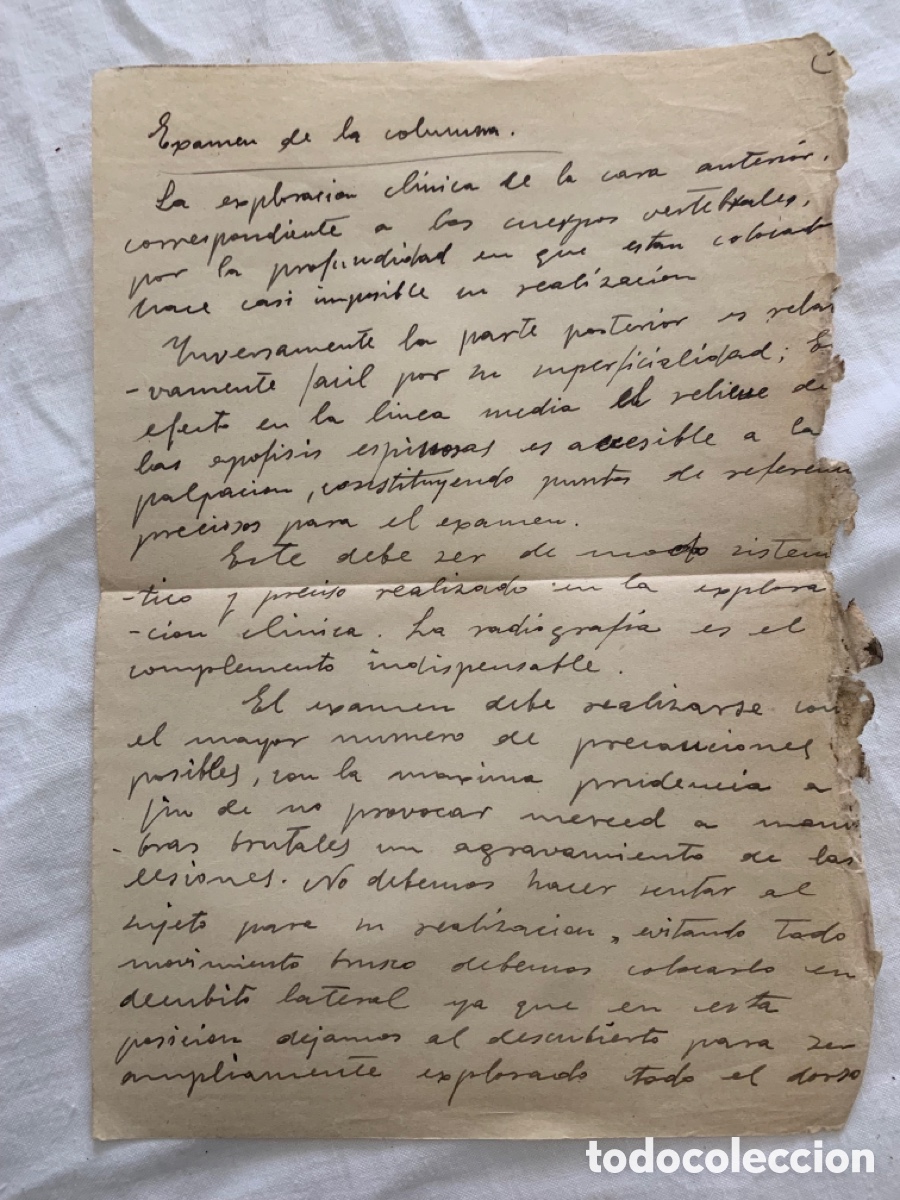 Examen de la columna.
La exploracion clinica de la cara anterior,
correspondiente a los cuerpos vertebrales,
por la profundidad en que estan colocad
hace casi imposible su realizacion
Inversamente la parte posterior es relati
-vamente facil por su superficialidad; En
efecto en la linea media el relieve de
las apofisis espinosas es accesible a la
palpacion, constituyendo puntos de referenci
preciosos para el examen.
Este debe ser de modo sistem
-tico y preciso realizado en la explora
-cion clinica. La radiografia es el
complemento indispensable.
El examen debe realizarse con
el mayor numero de precauciones
posibles, con la maxima prudencia a
fin de no provocar merced a mani
-bras brutales un agravamiento de las
lesiones. No debemos hacer sentar al
sujeto para su realizacion, evitando todo
movimiento brusco debemos colocarlo en
decubito lateral ya que en esta
posicion dejamos al descubierto para ser
ampliamente explorado todo el dorso
todocoleccion